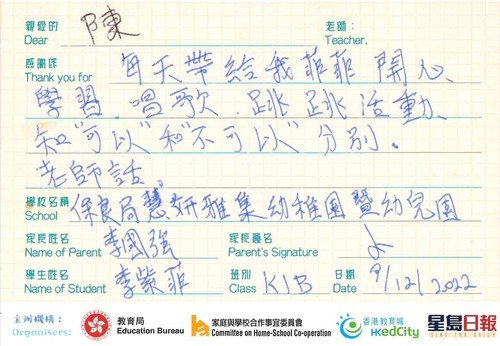 親愛的 陳 老師：
Dear Teacher,
感謝您 每天帶給我菲菲開心、
Thank you for
學習、唱歌、跳跳活動、
知"可以"和"不可以"分別。
老師話。
學校名稱 保良局慧妍雅集幼稚園暨幼兒園
School
家長姓名 李國強 家長簽名
Name of Parent Parent's Signature
學生姓名 李紫菲 班別 K1B 日期 9/12/2022
Name of Student Class Date
主辦機構： 教育局 家庭與學校合作事宜委員會 香港教育城 星島日報
Organisers: Education Bureau Committee on Home-School Co-operation HKedCity SING TAO DAILY